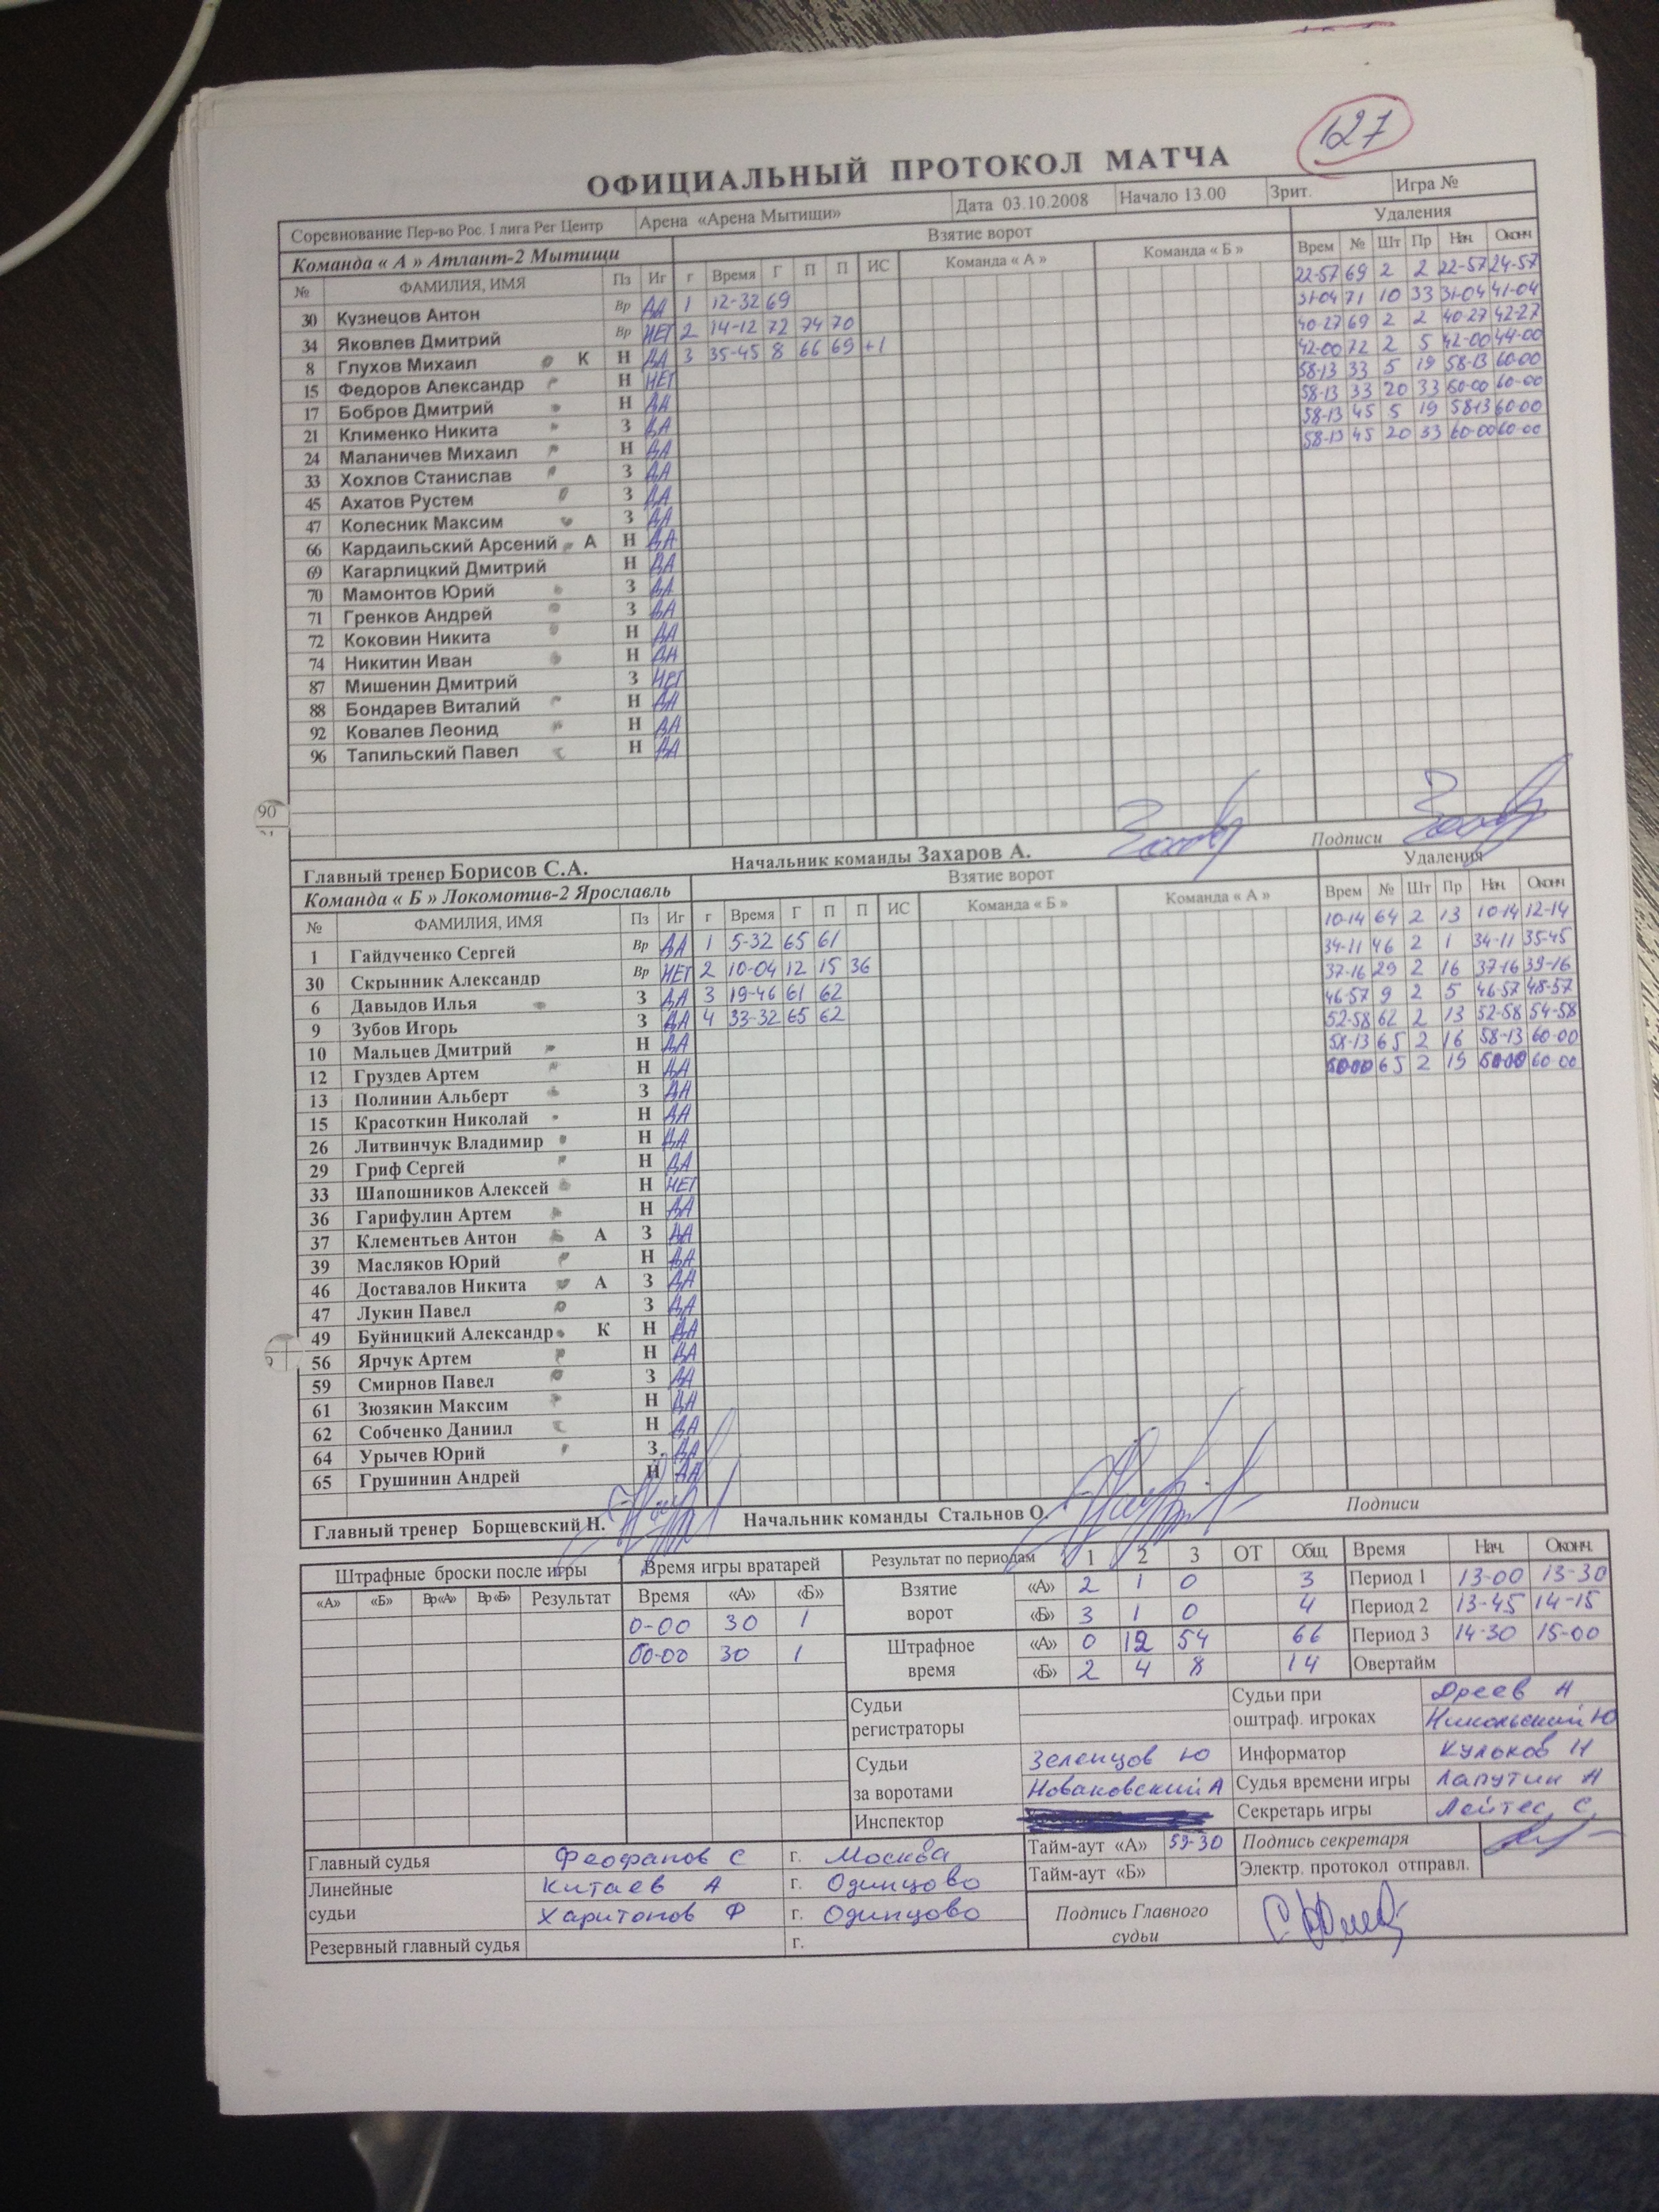 127
ОФИЦИАЛЬНЫЙ ПРОТОКОЛ МАТЧА
Соревнование Пер-во Рос. I лига Рег Центр Арена «Арена Мытищи» Дата 03.10.2008 Начало 13.00 Зрит. Игра №
Команда « А » Атлант-2 Мытищи Взятие ворот Удаления
№ ФАМИЛИЯ, ИМЯ Пз Иг г Время Г П П ИС Команда « А » Команда « Б » Врем № Шт Пр Нач. Оконч.
22-57 69 2 2 22-57 24-57
30 Кузнецов Антон Вр ДА 1 12-32 69 31-04 71 10 33 31-04 41-04
34 Яковлев Дмитрий Вр НЕТ 2 14-12 72 74 70 40-27 69 2 2 40-27 42-27
8 Глухов Михаил К Н ДА 3 35-45 8 66 69 +1 42-00 72 2 5 42-00 44-00
15 Федоров Александр Н НЕТ 58-13 33 5 19 58-13 60-00
17 Бобров Дмитрий Н ДА 58-13 33 20 33 60-00 60-00
21 Клименко Никита З ДА 58-13 45 5 19 58-13 60-00
24 Маланичев Михаил Н ДА 58-13 45 20 33 60-00 60-00
33 Хохлов Станислав З ДА
45 Ахатов Рустем З ДА
47 Колесник Максим З ДА
66 Кардаильский Арсений А Н ДА
69 Кагарлицкий Дмитрий Н ДА
70 Мамонтов Юрий З ДА
71 Гренков Андрей З ДА
72 Коковин Никита Н ДА
74 Никитин Иван Н ДА
87 Мишенин Дмитрий З НЕТ
88 Бондарев Виталий Н ДА
92 Ковалев Леонид Н ДА
96 Тапильский Павел Н ДА
90
Главный тренер Борисов С.А. Начальник команды Захаров А. Подписи
Команда « Б » Локомотив-2 Ярославль Взятие ворот Удаления
№ ФАМИЛИЯ, ИМЯ Пз Иг г Время Г П П ИС Команда « Б » Команда « А » Врем № Шт Пр Нач. Оконч.
10-14 64 2 13 10-14 12-14
1 Гайдученко Сергей Вр ДА 1 5-32 65 61 34-11 46 2 1 34-11 35-45
30 Скрынник Александр Вр НЕТ 2 10-04 12 15 36 37-16 29 2 16 37-16 39-16
6 Давыдов Илья З ДА 3 19-46 61 62 46-57 9 2 5 46-57 48-57
9 Зубов Игорь З ДА 4 33-32 65 62 52-58 62 2 13 52-58 54-58
10 Мальцев Дмитрий Н ДА 58-13 65 2 16 58-13 60-00
12 Груздев Артем Н ДА 60-00 65 2 19 60-00 60-00
13 Полинин Альберт З ДА
15 Красоткин Николай Н ДА
26 Литвинчук Владимир Н ДА
29 Гриф Сергей Н ДА
33 Шапошников Алексей Н НЕТ
36 Гарифулин Артем Н ДА
37 Клементьев Антон А З ДА
39 Масляков Юрий Н ДА
46 Доставалов Никита А З ДА
47 Лукин Павел З ДА
49 Буйницкий Александр К Н ДА
56 Ярчук Артем Н ДА
59 Смирнов Павел З ДА
61 Зюзякин Максим Н ДА
62 Собченко Даниил Н ДА
64 Урычев Юрий З ДА
65 Грушинин Андрей Н ДА
Главный тренер Борщевский Н. Начальник команды Стальнов О. Подписи
Штрафные броски после игры Время игры вратарей Результат по периодам 1 2 3 ОТ Общ. Время Нач. Оконч.
«А» «Б» Вр«А» Вр«Б» Результат Время «А» «Б» Взятие ворот «А» 2 1 0 3 Период 1 13-00 13-30
0-00 30 1 «Б» 3 1 0 4 Период 2 13-45 14-15
60-00 30 1 Штрафное время «А» 0 12 54 66 Период 3 14-30 15-00
«Б» 2 4 8 14 Овертайм
Судьи регистраторы Судьи при оштраф. игроках Дреев А
Никольский Ю
Судьи за воротами Зеленцов Ю Информатор Кульков Н
Новаковский А Судья времени игры Лапутин А
Инспектор Секретарь игры Лейтес С.
Главный судья Феофанов С г. Москва Тайм-аут «А» 59-30 Подпись секретаря
Линейные судьи Китаев А г. Одинцово Тайм-аут «Б» Электр. протокол отправл.
Харитонов Ф г. Одинцово Подпись Главного судьи
Резервный главный судья г.